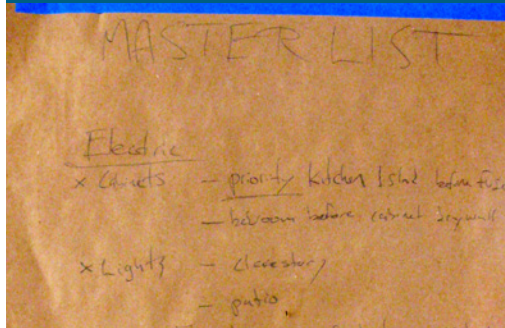 MASTER LIST
Electric
x – priority Kitchen Island before fuse
– bedroom before cabinet drywall
x Lights – clerestory
– patio